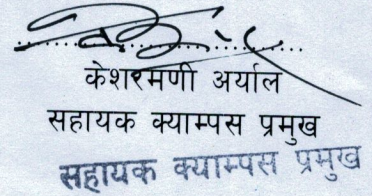 केशरमणी अर्याल
सहायक क्याम्पस प्रमुख
सहायक क्याम्पस प्रमुख